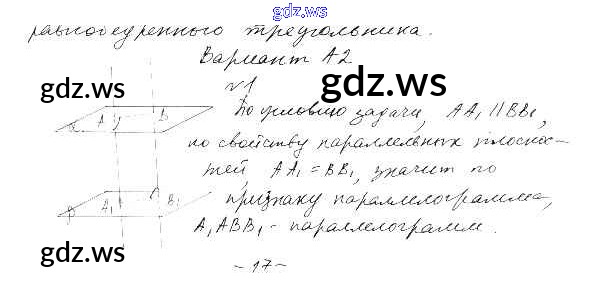 gdz.ws
равнобедренного треугольника.
Вариант А2
gdz.ws
gdz.ws
№1
α А В
По условию задачи, AA₁ || BB₁,
по свойству параллельных плоскос-
тей AA₁ = BB₁, значит по
признаку параллелограмма,
β А₁ В₁
A₁ABB₁ - параллелограмм.
gdz.ws
gdz.ws
- 17 -